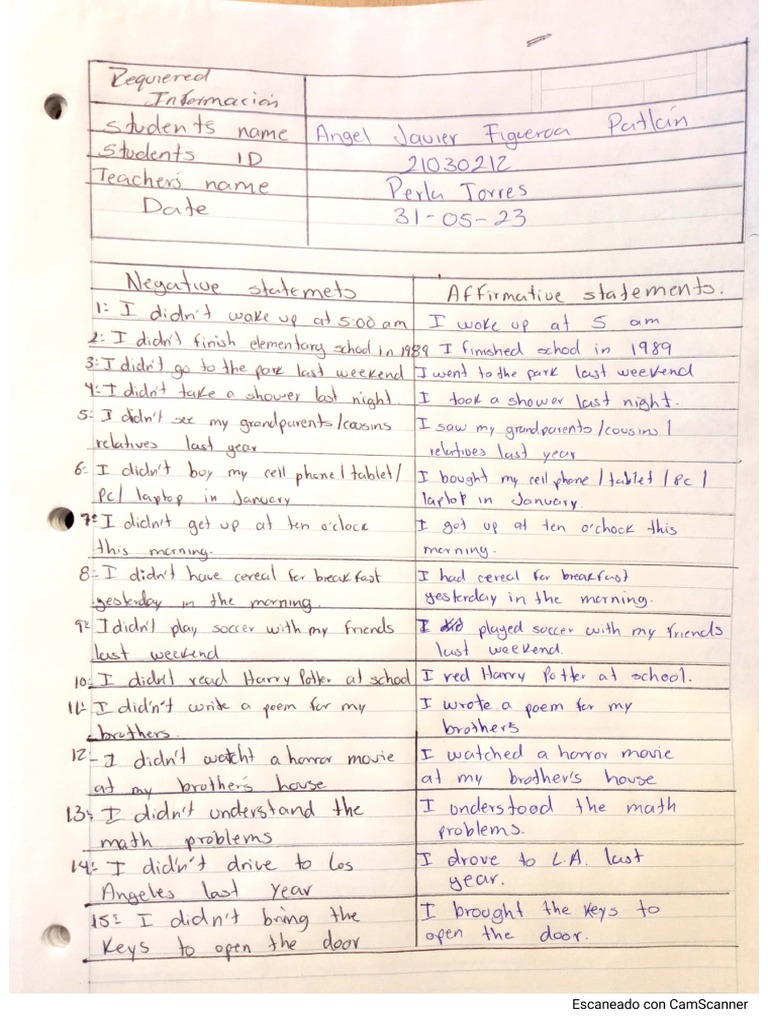 Requiered
Información
Students name Angel Javier Figueroa Patlán
Students ID 21030212
Teacher's name Perla Torres
Date 31-05-23
Negative statemets Affirmative statements.
1:- I didn't wake up at 5:00 am I woke up at 5 am
2:- I didn't finish elementary school in 1989 I finished school in 1989
3:- I didn't go to the park last weekend I went to the park last weekend
4:- I didn't take a shower last night. I took a shower last night.
5:- I didn't see my grandparents/cousins I saw my grandparents/cousins/
relatives last year relatives last year
6:- I didn't buy my cell phone/tablet/ I bought my cell phone/tablet/Pc/
Pc/laptop in January laptop in January.
7:- I didn't get up at ten o'clock I got up at ten o'chock this
this morning. morning.
8:- I didn't have cereal for breakfast I had cereal for breakfast
yesterday in the morning. yesterday in the morning.
9:- I didn't play soccer with my friends I played soccer with my friends
last weekend last weekend.
10:- I didn't read Harry Potter at school I red Harry Potter at school.
11:- I didn't write a poem for my I wrote a poem for my
brothers. brothers
12:- I didn't watcht a horror movie I watched a horror movie
at my brother's house at my brother's house
13:- I didn't understand the I understood the math
math problems problems.
14:- I didn't drive to Los I drove to L.A. last
Angeles last year year.
15:- I didn't bring the I brought the keys to
keys to open the door open the door.
Escaneado con CamScanner